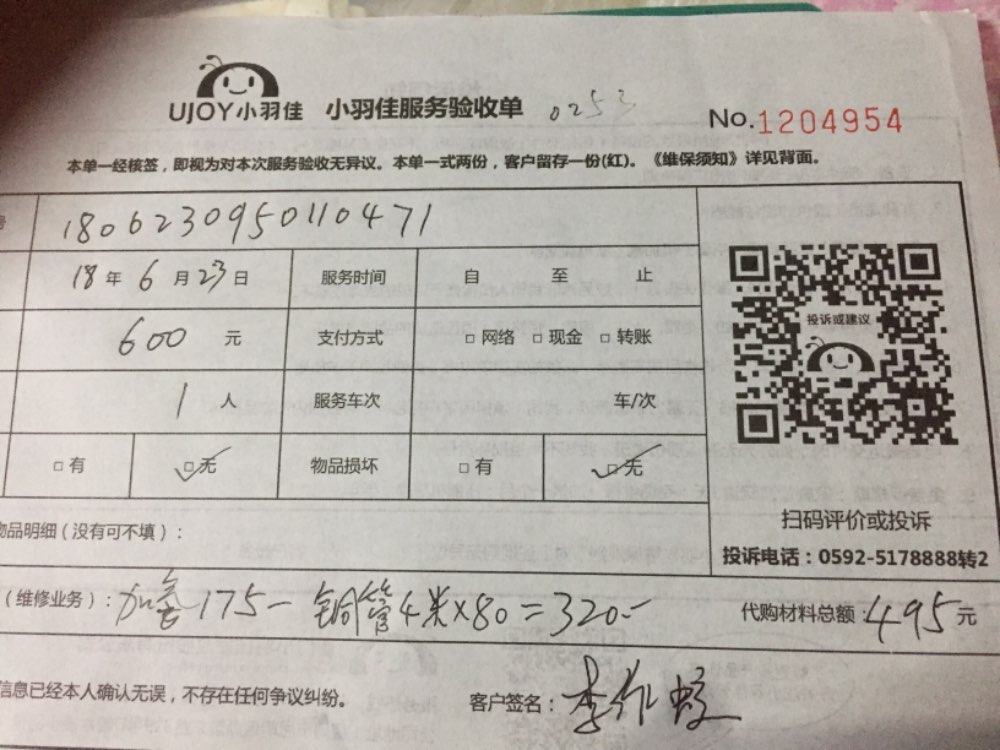 UJOY小羽佳 小羽佳服务验收单 0253 No.1204954
本单一经核签，即视为对本次服务验收无异议。本单一式两份，客户留存一份(红)。《维保须知》详见背面。
1806230950110471
18年6月23日 服务时间 自 至 止
600 元 支付方式 □网络 □现金 □转账
1 人 服务车次 车/次
□有 ☑无 物品损坏 □有 ☑无
投诉或建议
扫码评价或投诉
投诉电话：0592-5178888转2
物品明细（没有可不填）：
（维修业务）： 175- 铜管4米×80=320.- 代购材料总额：495元
信息已经本人确认无误，不存在任何争议纠纷。 客户签名：李